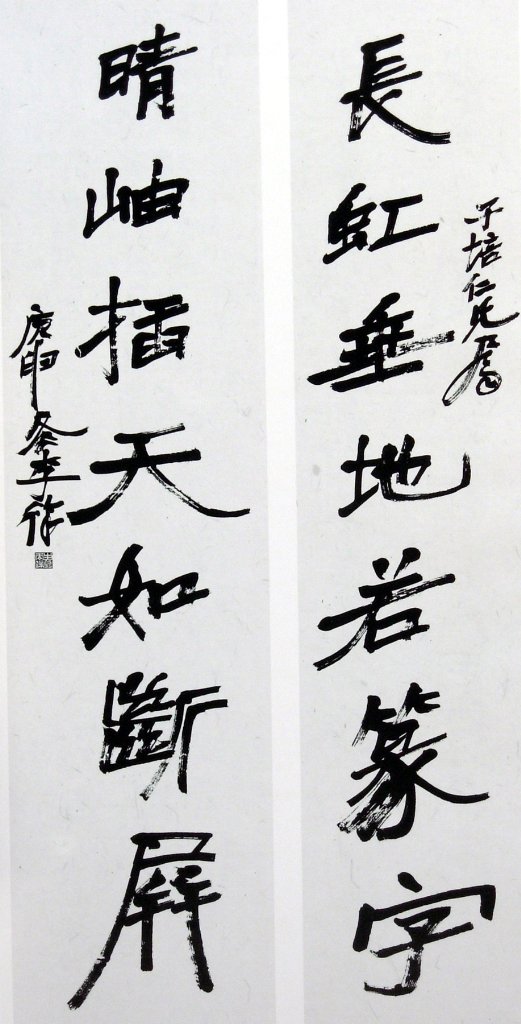 長虹垂地若篆字
子培仁兄
晴岫插天如斷屏
庚申冬